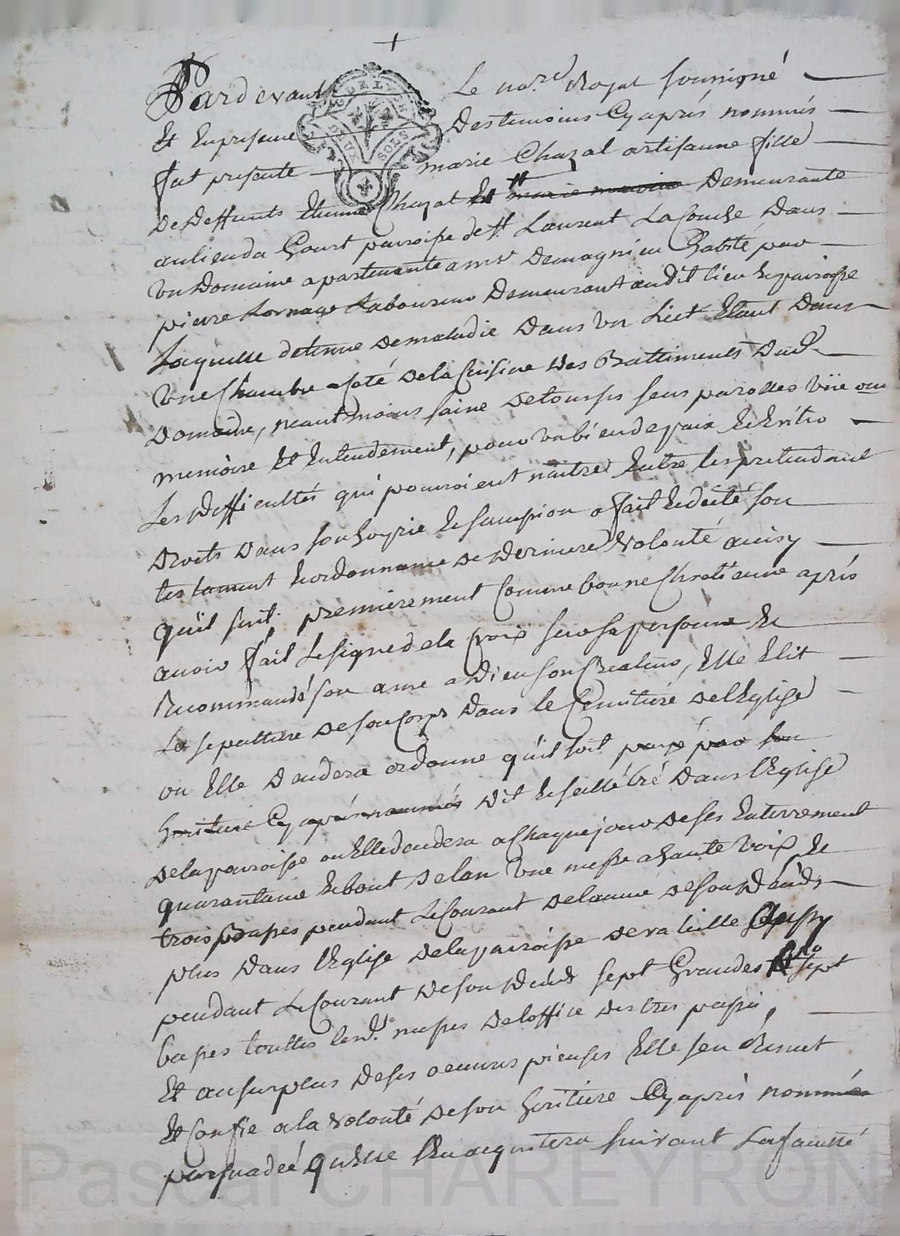 Pardevant Le no.re Royal soussigné
Et En presence Des temoins Cy après nommés
fut presente marie Chazal artisanne fille
De Deffunts Etienne Chazal Et Demeurante
au lieu du Gourt paroisse de St. Laurent La Couche Dans
Un Domaine apartenante a Mr Demagnieu habité par
pierre Laboureur Demeurant audit lieu Et paroisse
Laquelle detenue De maladie Dans un Lict Etant Dans
Une Chambre a Coté De la Cuisine Des Battiments Dud.
Domaine, neantmoins saine De touts ses sens parolles vüe ouie
memoire Et Entendement, pour un bien de paix Et Evitter
Les Difficultés qui pouroient naitre Entre les pretendant
Droits Dans son hoyrie Et sa fait Et dicté son
testament Et ordonnance De Derniere Volonté ainsy
qu'il suit. premierement Comme bonne Chretienne après
avoir fait Le signe de la Croix sur sa personne Et
Recommandé son ame a Dieu son Createur, Elle Elit
La sepulture De son Corps Dans le Cimetiere De l'Eglise
ou Elle Decedera ordonne qu'il soit par son
heritiere Cy après nommée Dit Et Cellebré Dans l'Eglise
De la paroisse ou Elle decedera a Chaque jour De ses Enterrement
quarantaine Et bout De l'an Une messe a haute voix Et
trois basses pendant Le Courant De l'année De son Décéds
plus Dans l'Eglise De la paroisse De Aussy
pendant Le Courant De son Décéds sept Grandes Et sept
basses touttes lesd. messes De l'office Des trepassés,
Et au surplus De ses oeuvres pieuses Elle s'en remet
Et Confie a la Volonté De son heritiere Cy après nommée
persuadée qu'Elle s'en acquittera suivant Sa faculté
DE LYON
SOLS
Pascal CHAREYRON